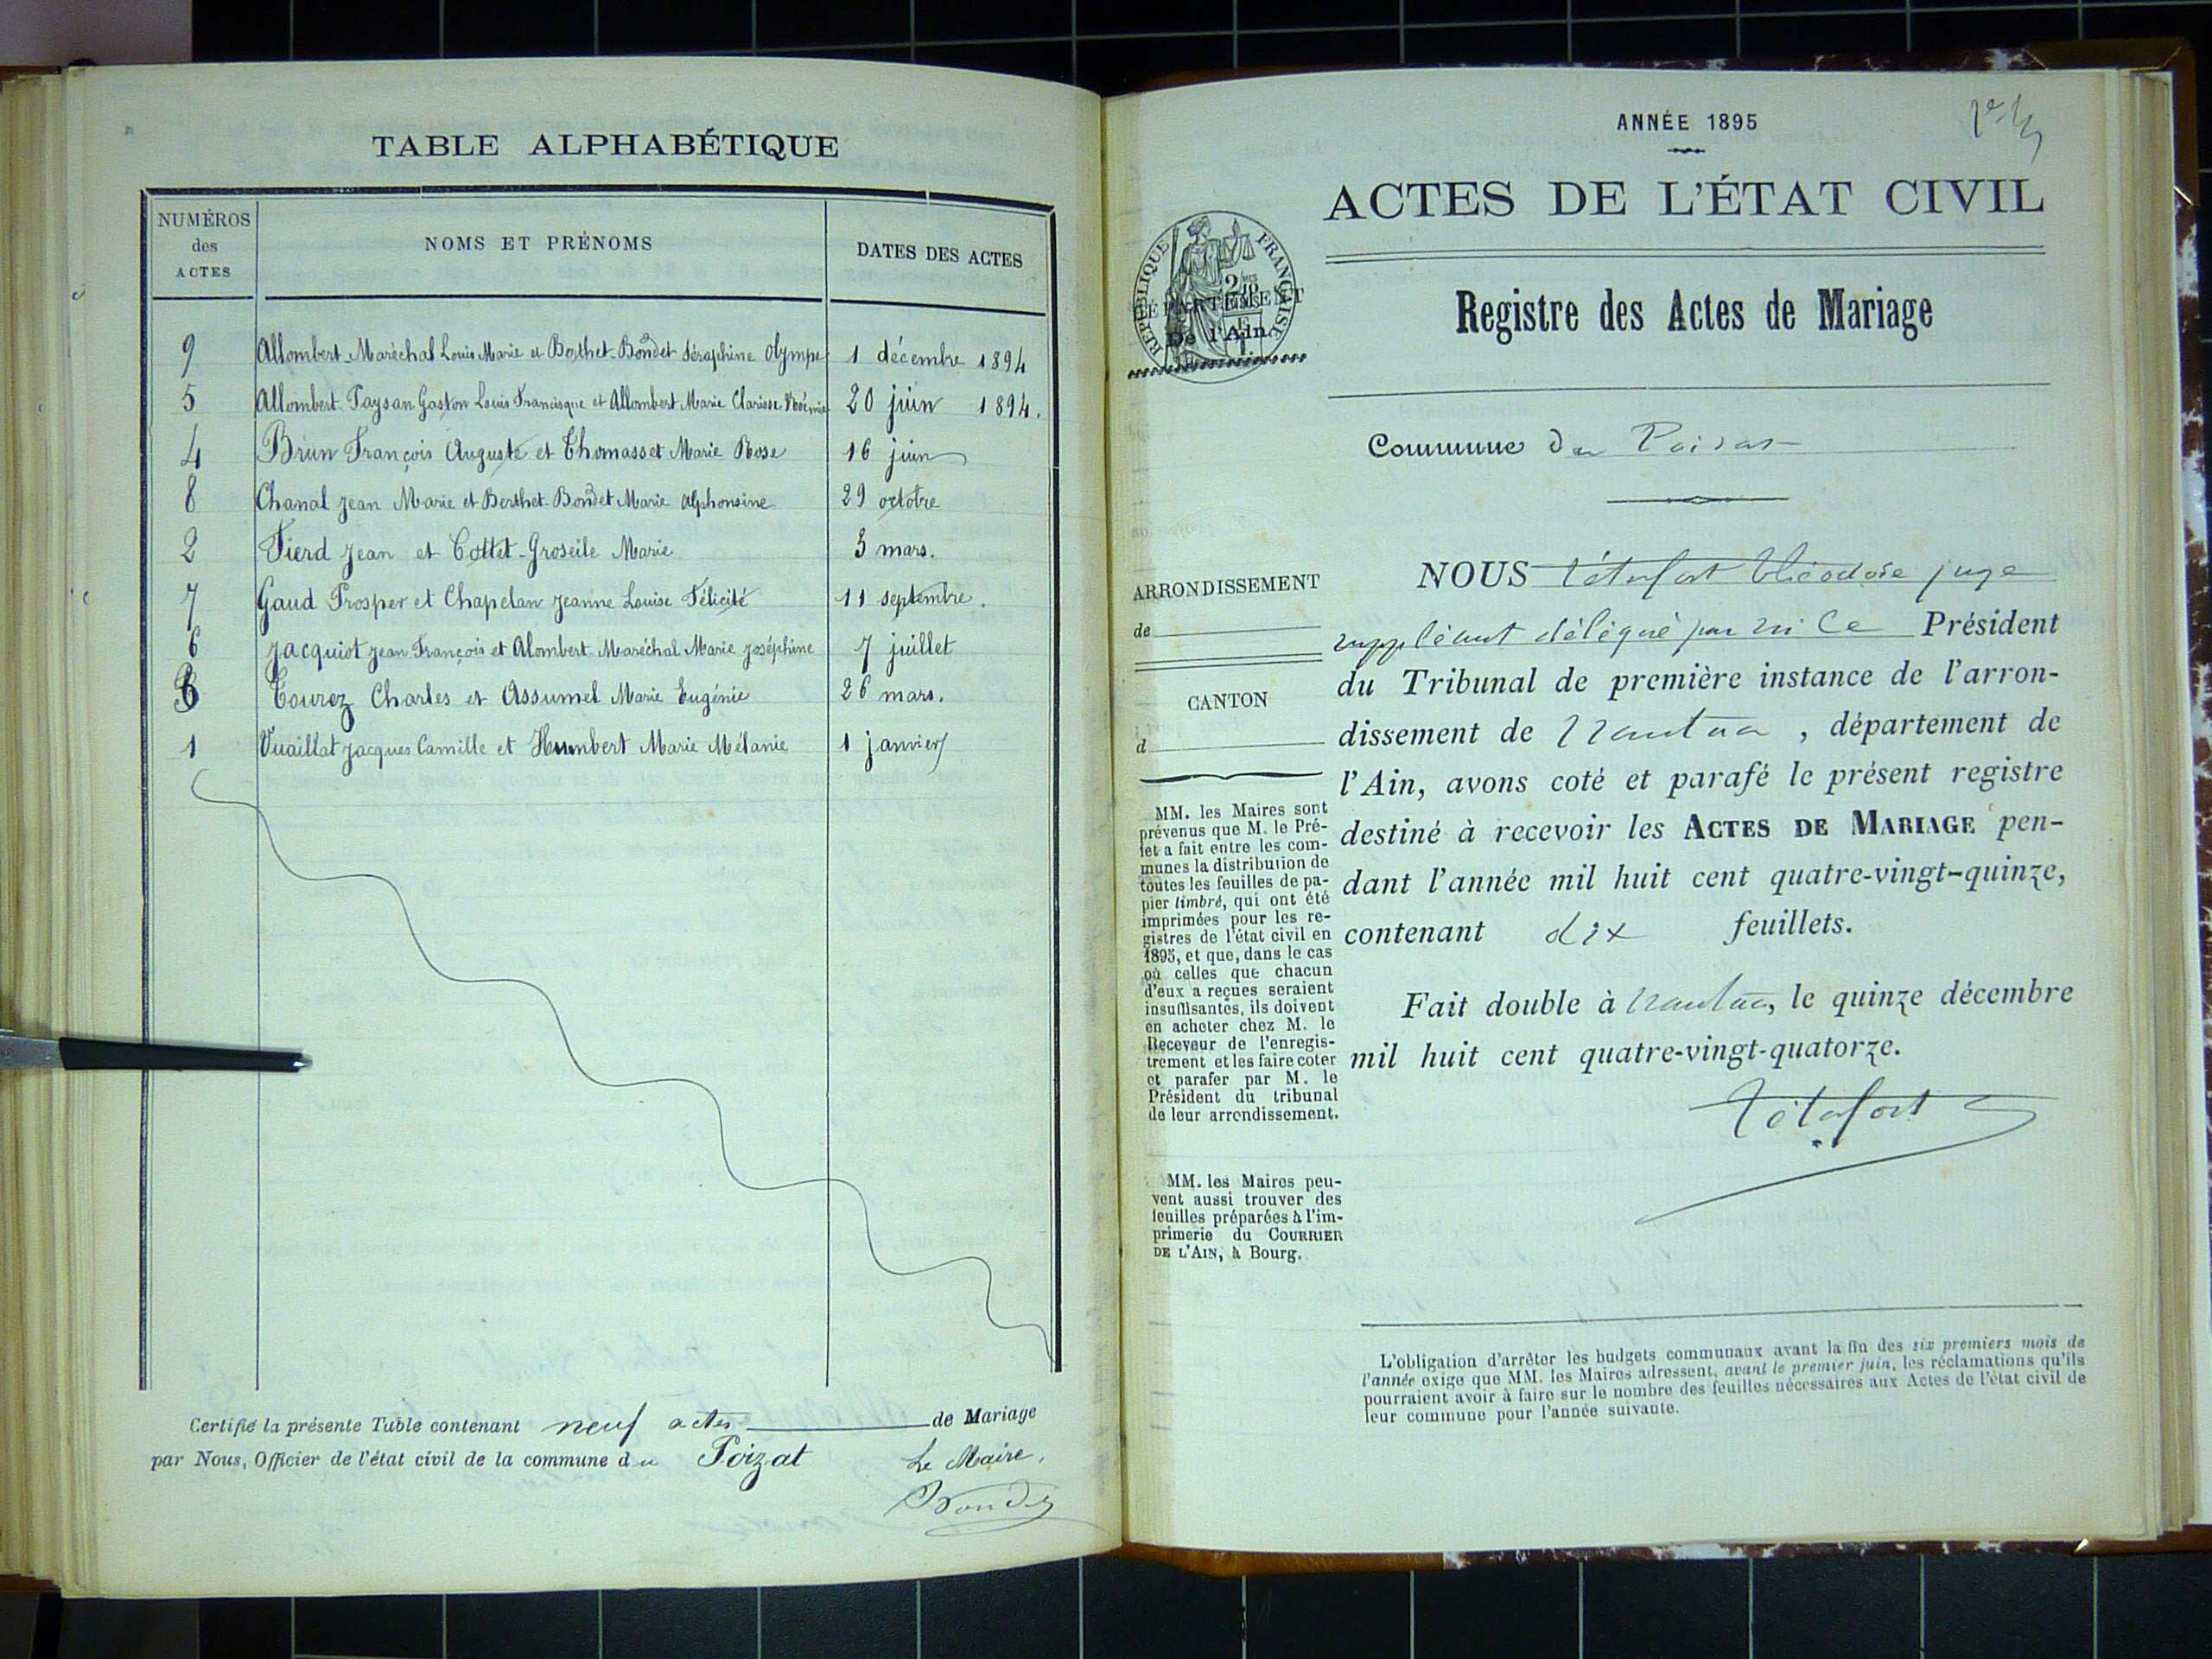 TABLE ALPHABÉTIQUE
NUMÉROS
des
ACTES
NOMS ET PRÉNOMS
DATES DES ACTES
9 Allombert-Maréchal Louis Marie et Berthet-Bondet Séraphine Olympe 1 décembre 1894
5 Allombert-Paysan Gaston Louis Francisque et Allombert Marie Clarisse Noémie 20 juin 1894.
4 Brun François Auguste et Thomasset Marie Rose 16 juin
8 Chanal Jean Marie et Berthet-Bondet Marie Alphonsine 29 octobre
2 Fierd Jean et Cottet-Groseile Marie 3 mars.
7 Gaud Prosper et Chapelan Jeanne Louise Félicité 11 septembre.
6 Jacquiot Jean François et Alombert-Maréchal Marie Joséphine 7 juillet
3 Tourez Charles et Assumel Marie Eugénie 26 mars.
1 Vuaillat Jacques Camille et Humbert Marie Mélanie 1 janvier
Certifié la présente Table contenant neuf actes de Mariage
par Nous, Officier de l'état civil de la commune du Poizat
Le Maire,
ANNÉE 1895
ACTES DE L'ÉTAT CIVIL
RÉPUBLIQUE FRANÇAISE
DÉPARTEMENT
De l'Ain
Registre des Actes de Mariage
Commune du Poizat
ARRONDISSEMENT
de
CANTON
d
MM. les Maires sont
prévenus que M. le Pré-
fet a fait entre les com-
munes la distribution de
toutes les feuilles de pa-
pier timbré, qui ont été
imprimées pour les re-
gistres de l'état civil en
1895, et que, dans le cas
où celles que chacun
d'eux a reçues seraient
insuffisantes, ils doivent
en acheter chez M. le
Receveur de l'enregis-
trement et les faire coter
et parafer par M. le
Président du tribunal
de leur arrondissement.
MM. les Maires peu-
vent aussi trouver des
feuilles préparées à l'im-
primerie du COURRIER
DE L'AIN, à Bourg.
NOUS Tétafort Théodose juge
suppléant délégué par M. le Président
du Tribunal de première instance de l'arron-
dissement de Nantua, département de
l'Ain, avons coté et parafé le présent registre
destiné à recevoir les ACTES DE MARIAGE pen-
dant l'année mil huit cent quatre-vingt-quinze,
contenant dix feuillets.
Fait double à Nantua, le quinze décembre
mil huit cent quatre-vingt-quatorze.
Tétafort
L'obligation d'arrêter les budgets communaux avant la fin des six premiers mois de
l'année exige que MM. les Maires adressent, avant le premier juin, les réclamations qu'ils
pourraient avoir à faire sur le nombre des feuilles nécessaires aux Actes de l'état civil de
leur commune pour l'année suivante.